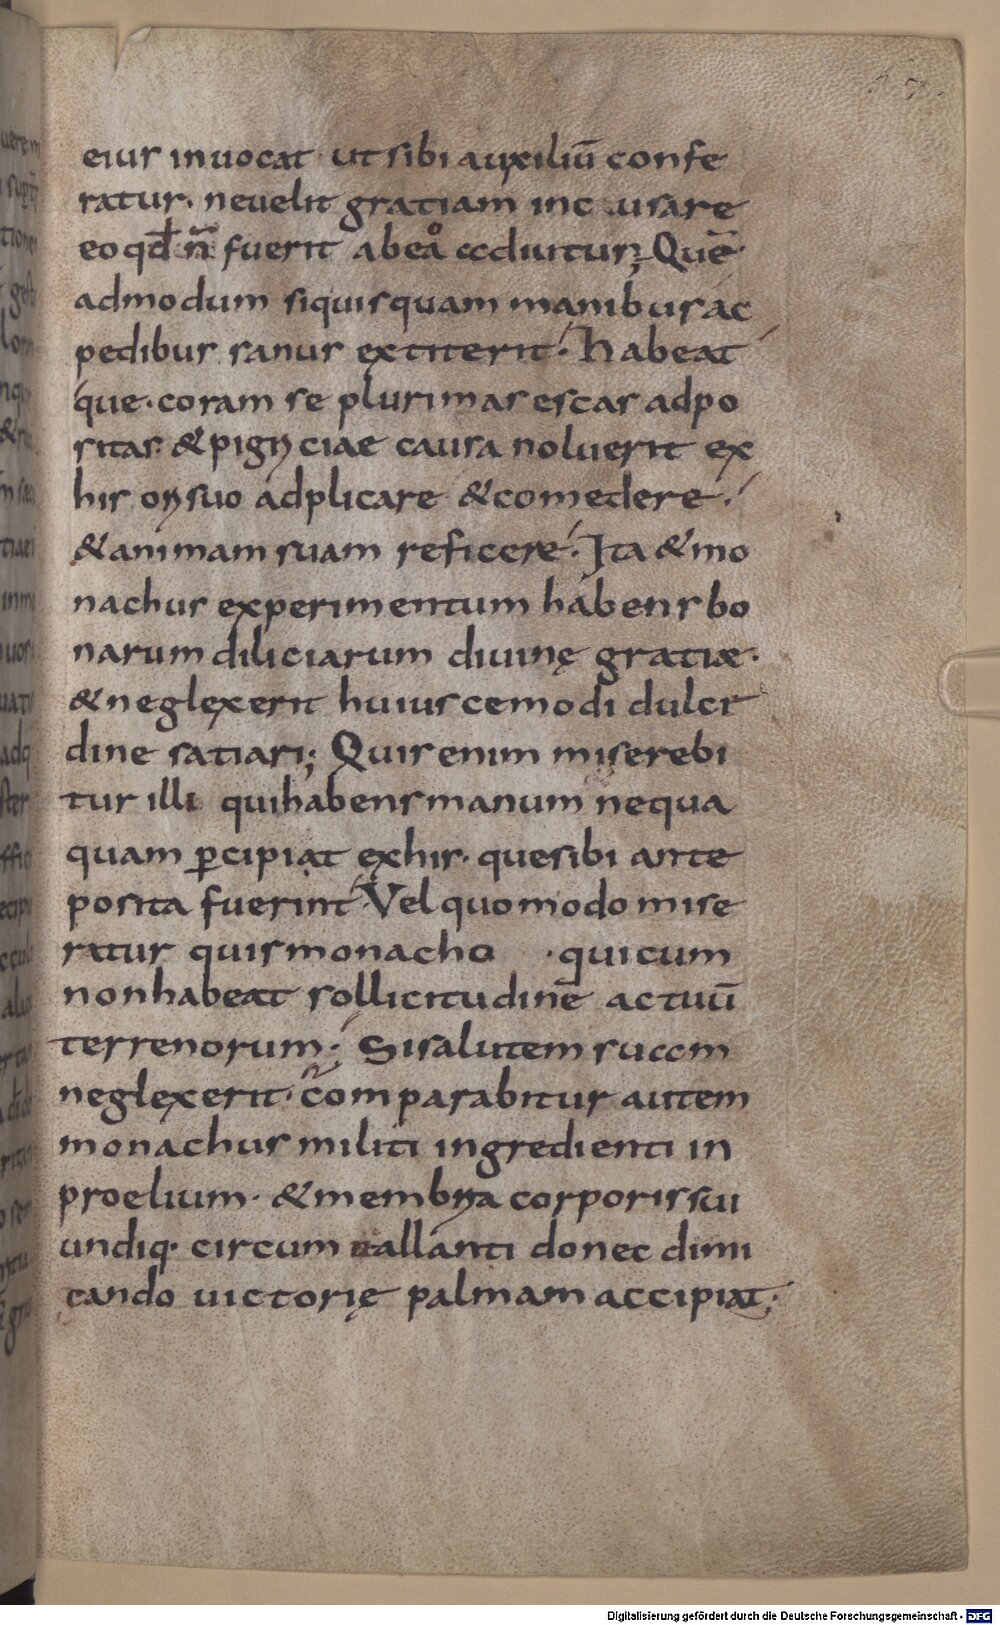 eius inuocat· ut sibi auxiliū confe
ratur· ne uelit gratiam inc usare
eo qđ n̄ fuerit ab ea adiutur; Quē
admodum si quisquam manibus ac
pedibus sanus extiterit· Habeat
que· coram se plurimas escas adpo
sitas· & pigriciae causa noluerit ex
his ori suo adplicare & comedere·
& animam suam reficere· Ita & mo
nachus experimentum habens bo
narum diliciarum diuinę gratiae·
& neglexerit huiuscemodi dulci
dine satiari; Quis enim miserebi
tur illi qui habens manum nequa
quam ꝑcipiat ex his· que sibi ante
posita fuerint· Vel quomodo mise
ratur quis monacho · qui cum
non habeat sollicitudinē actuū
terrenorum· Si salutem suam
neglexerit· comparabitur autem
monachus militi ingredienti in
proelium· & membra corporis sui
undiq· circum uallanti donec dimi
cando uictorię palmam accipiat;
Digitalisierung gefördert durch die Deutsche Forschungsgemeinschaft - DFG